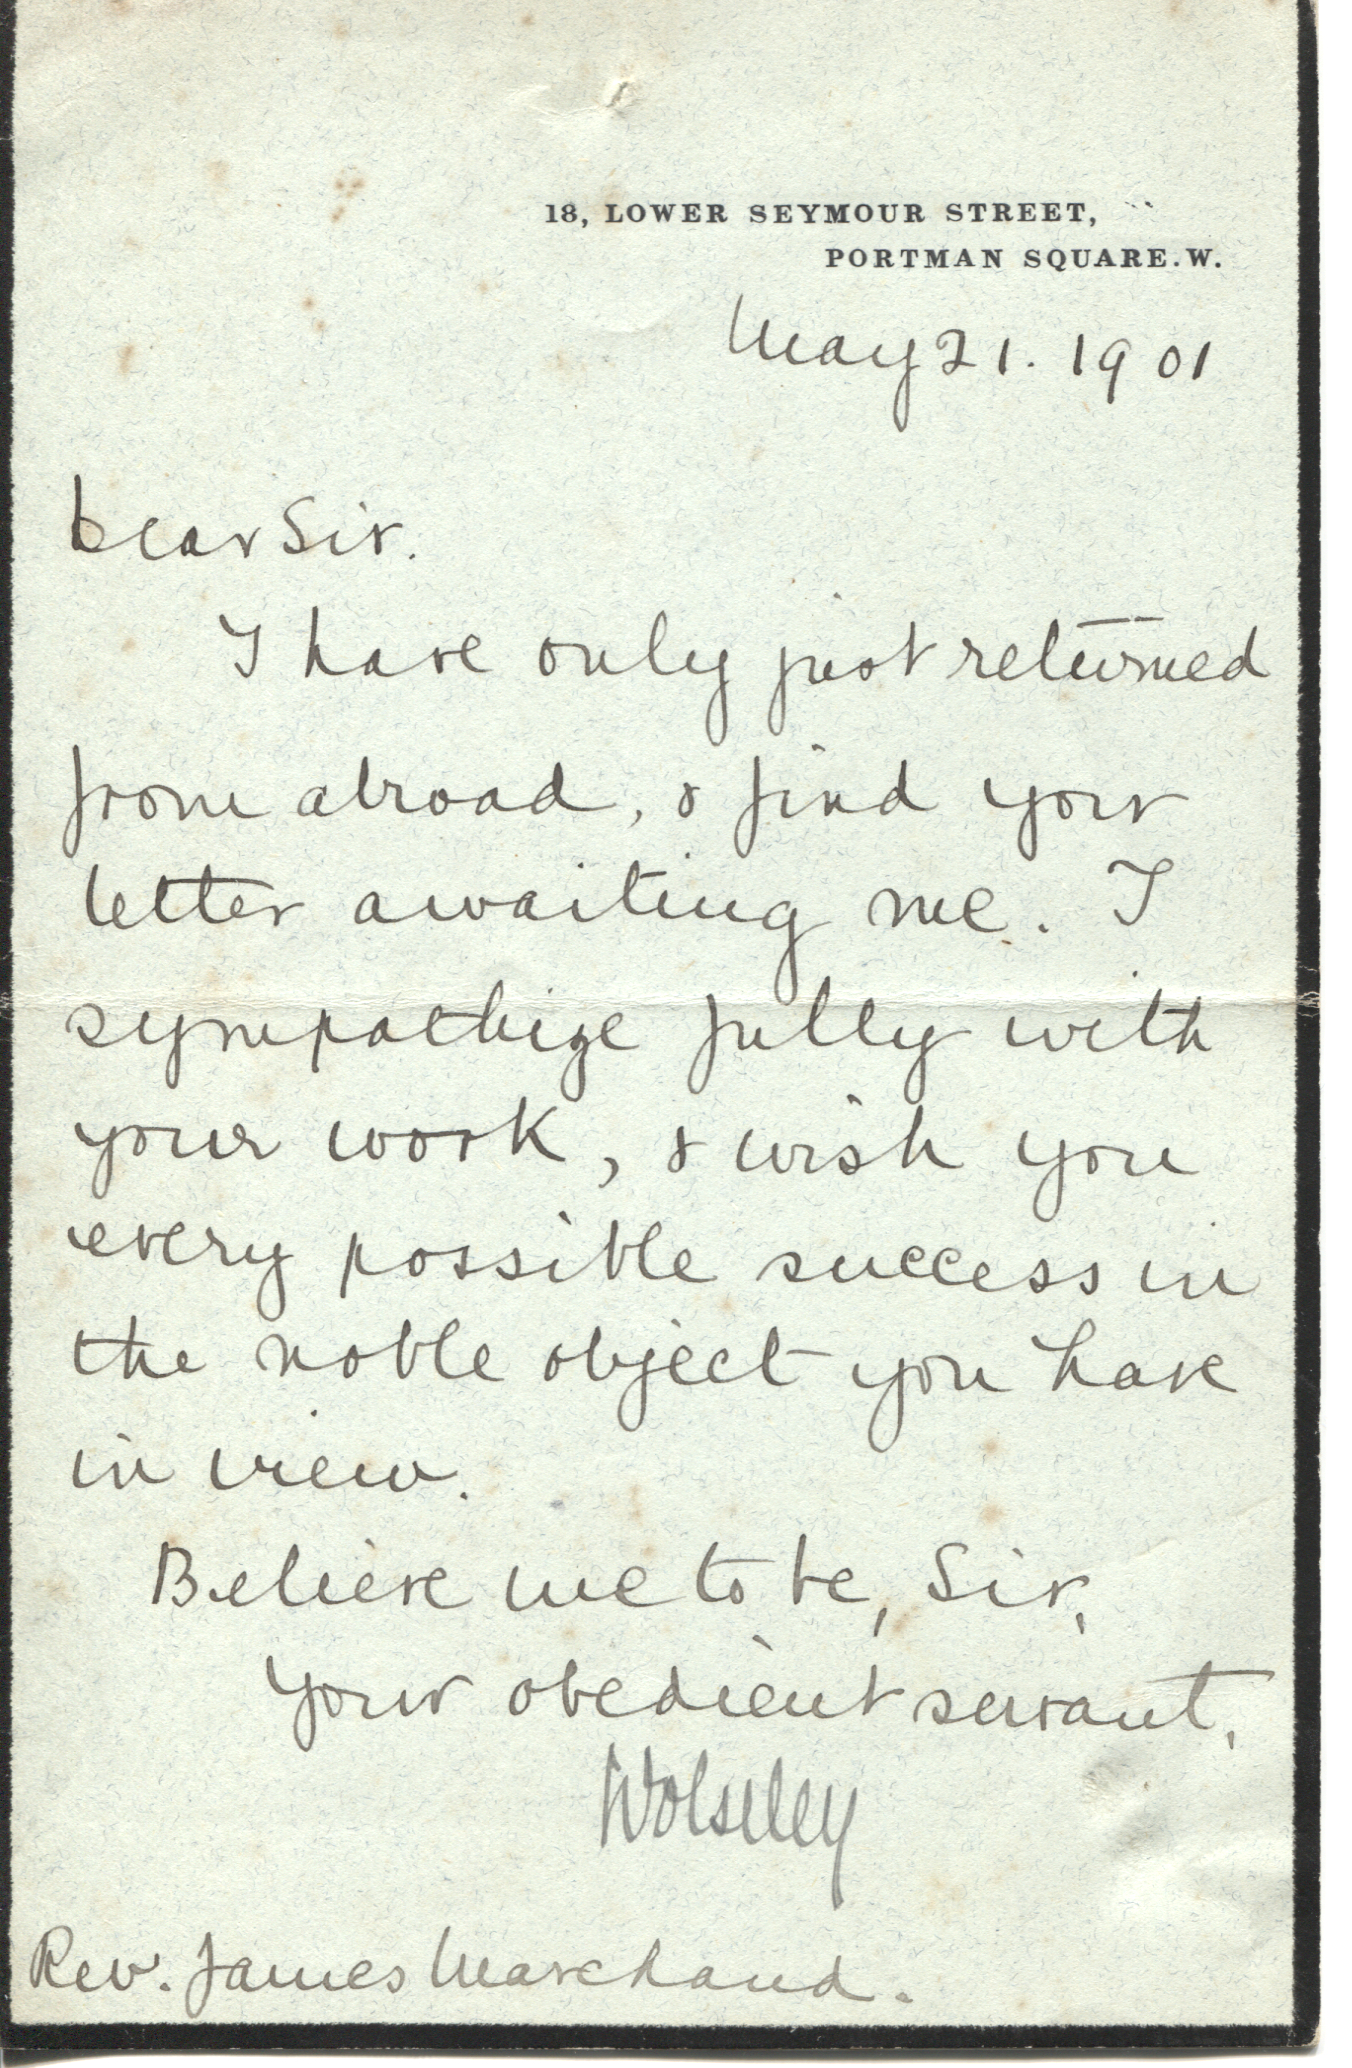 18, LOWER SEYMOUR STREET,
PORTMAN SQUARE.W.
May 21. 1901
Dear Sir.
I have only just returned
from abroad, & find your
letter awaiting me. I
sympathize fully with
your work, & wish you
every possible success in
the noble object you have
in view.
Believe me to be, Sir,
Your obedient servant,
Wolseley
Rev. James Marchand.